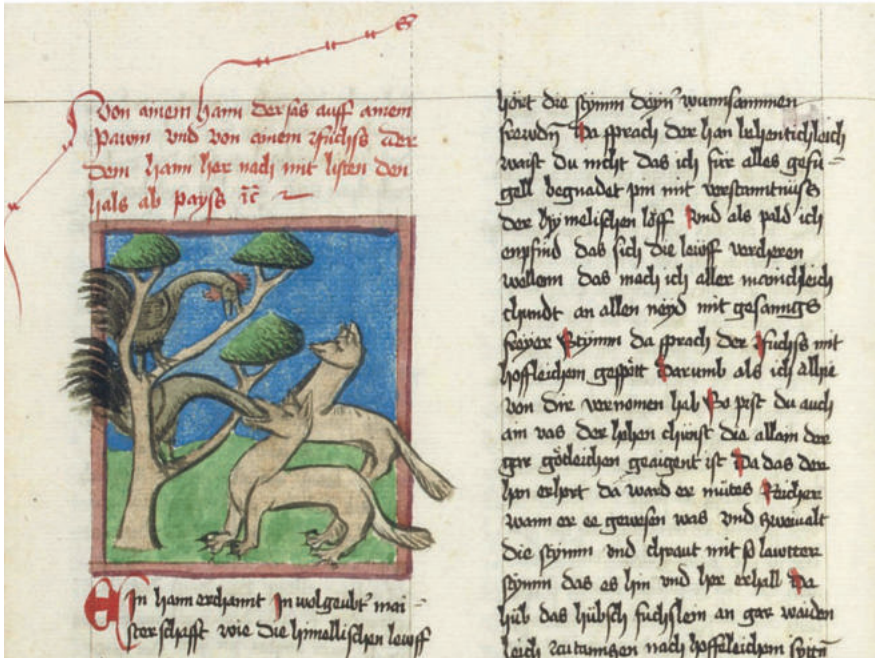 Von ainem Hann der sas auff ainem
pawm vnd von ainem Fuchss der
dem Hann her nach mit listen den
hals ab payss ꝛc̄
Ein Hann erchannt in wolgeubt mai-
sterschafft wie die himellischen lewff
hört die stymm deyn̄ wunnsammen
frewdn̄ Da sprach der han lehentichleich
waist du nicht das ich für alles gefu-
gell begnadet pin mit verstanntnuss
der hymelischen löff Vnd als pald ich
enpfind das sich die lewff vercheren
wellenn das mach ich aller mainchleich
chundt an allen neyd mit gesanngs
freyer Stymm da sprach der Fuchss mit
hoffleichem gespött Darumb als ich allhie
von dir vernomen hab So pist du auch
ain vas der hohen chünst die allain den
gar götleichen geaigent ist Da das der
han erhort da ward er mütes Reicher
wann er ee gewesen was vnd zwiualt
die stymm vnd chraut mit so lawtter
stymm das es hin vnd her erhall Da
hüb das hübsch fuchslein an gar waiden
leich zu tanngen nach hoffeleichem sytt̄n